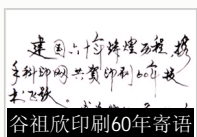 建国六十年辉煌历程，携
手科印网共贺印刷60年技
术飞跃
谷祖欣印刷60年寄语